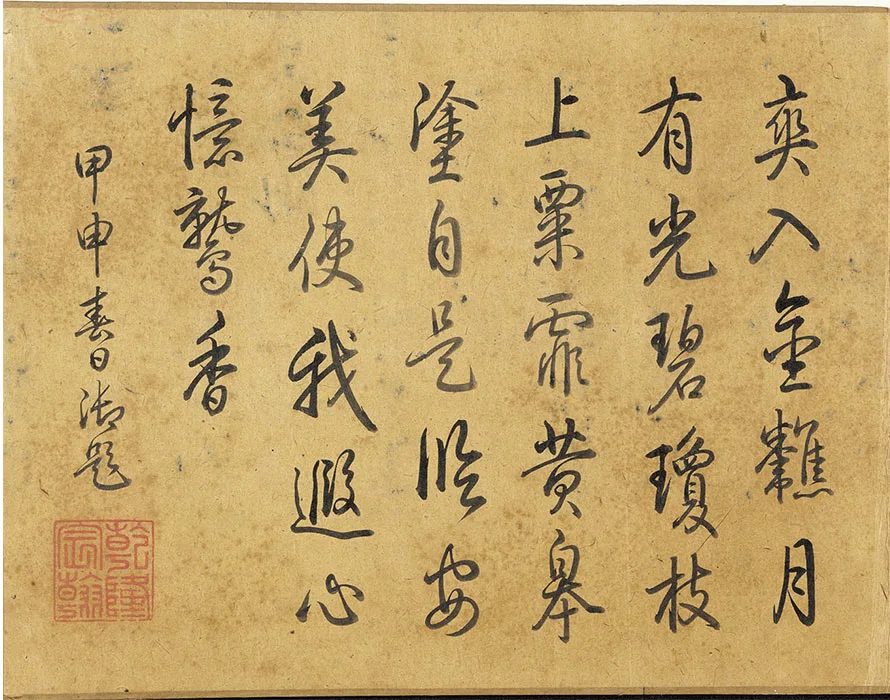 爽入金月
有光碧瓊枝
上粟霏黄皋
塗自是臨安
美使我遐心
憶鷲香
甲申春日御題
乾隆
宸翰